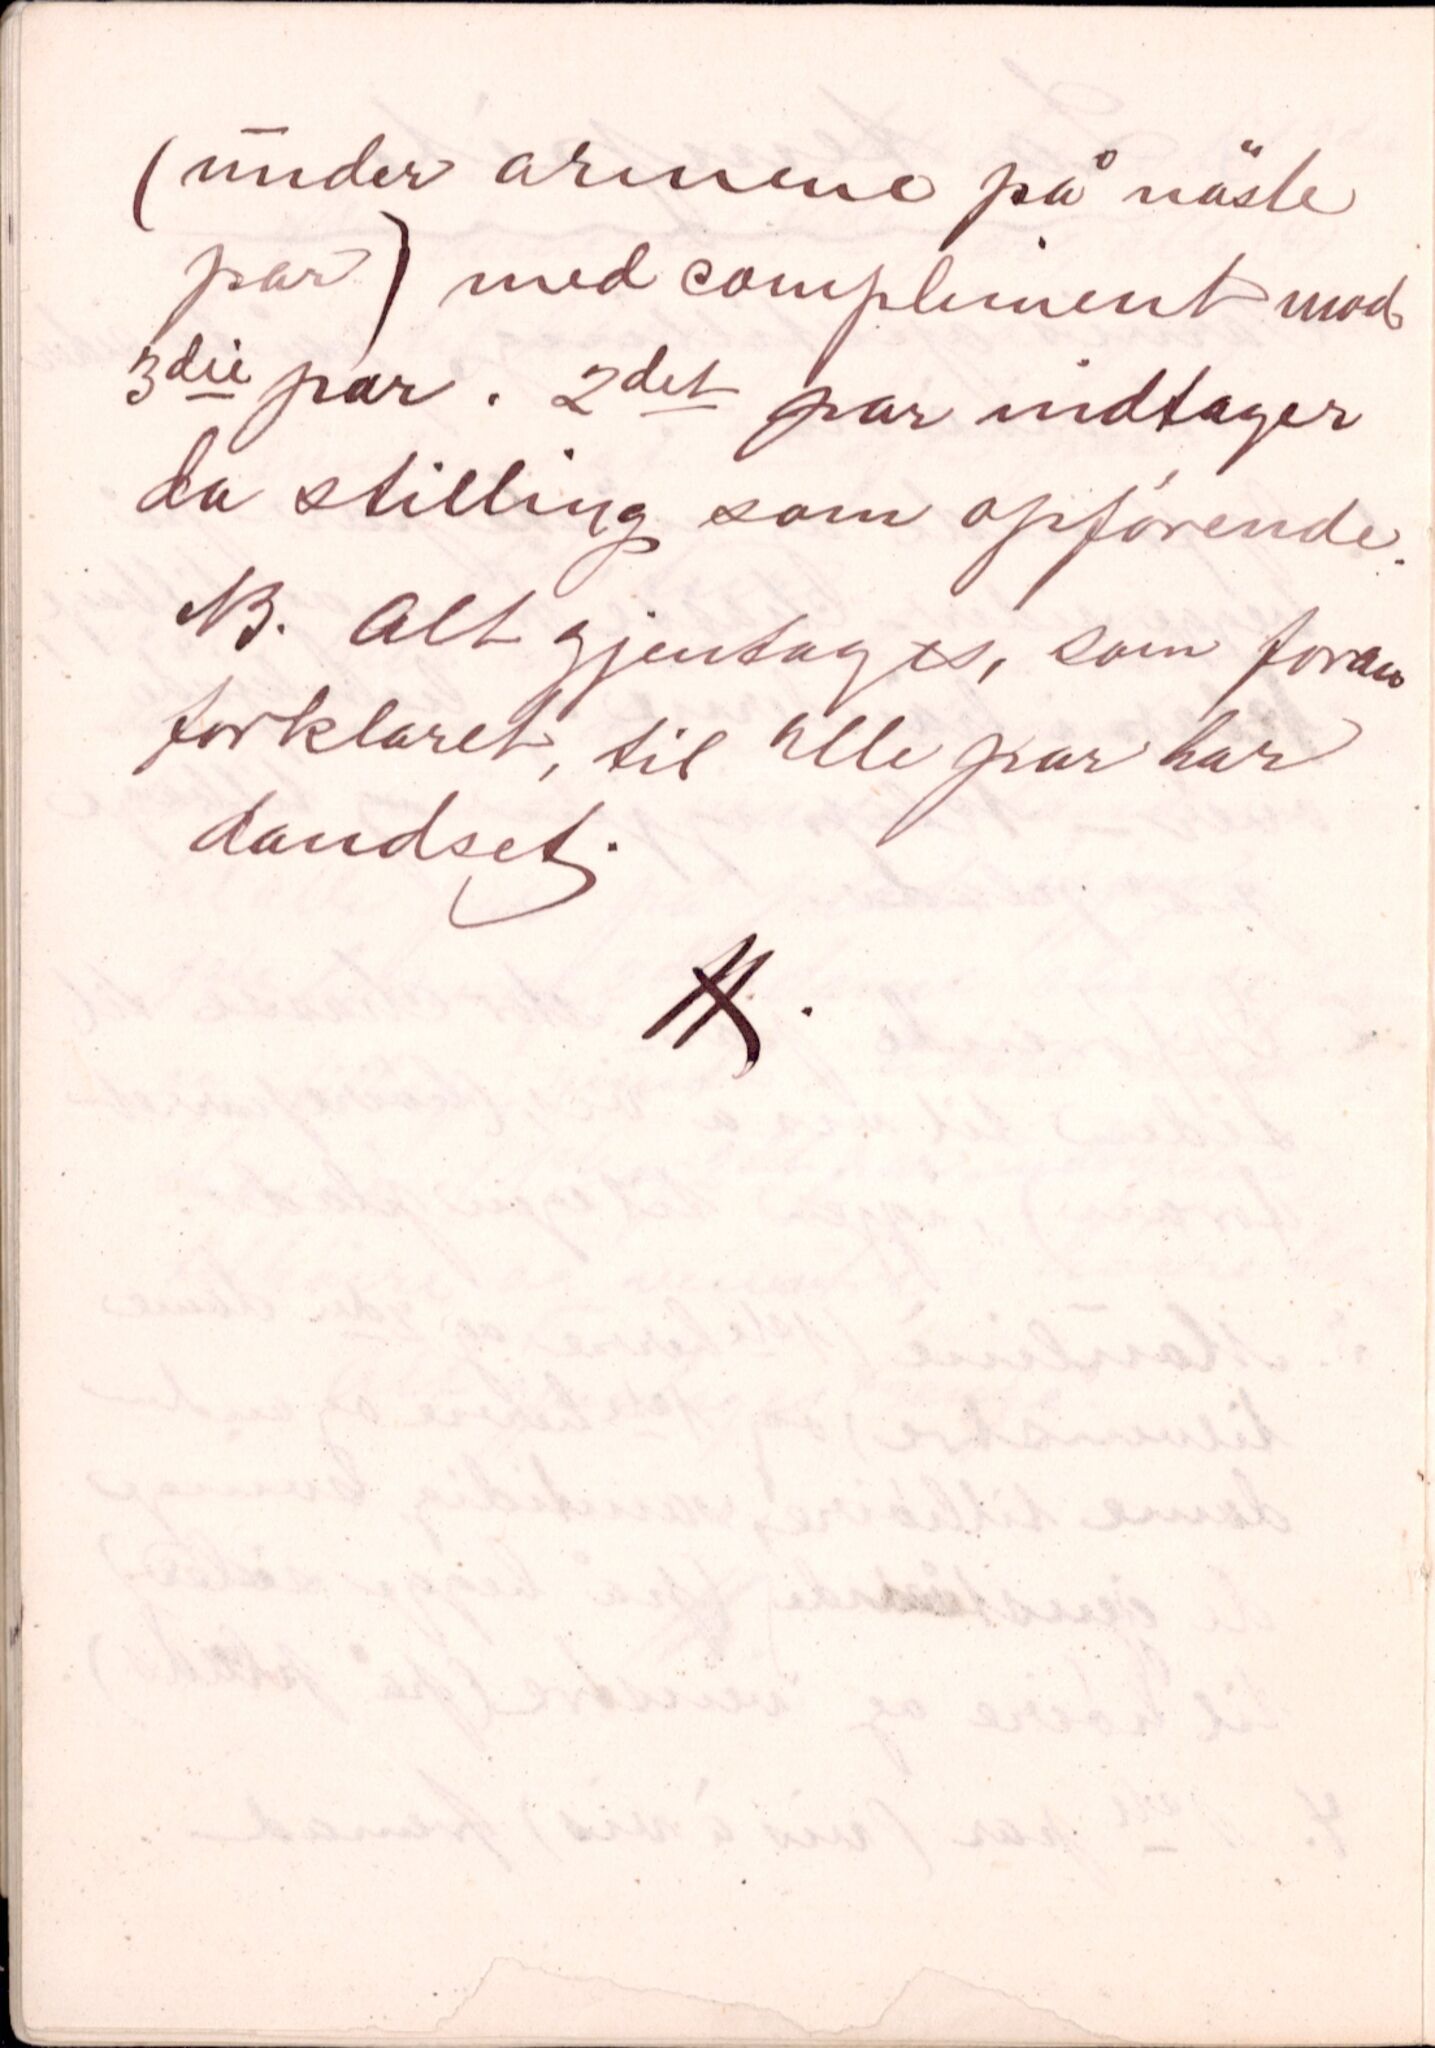 (under armene på näste
par) med compliment mod
3die par. 2det par indtager
da stilling som opförende.
NB. Alt gjentages, som foran
forklaret, til alle par har
dandset.